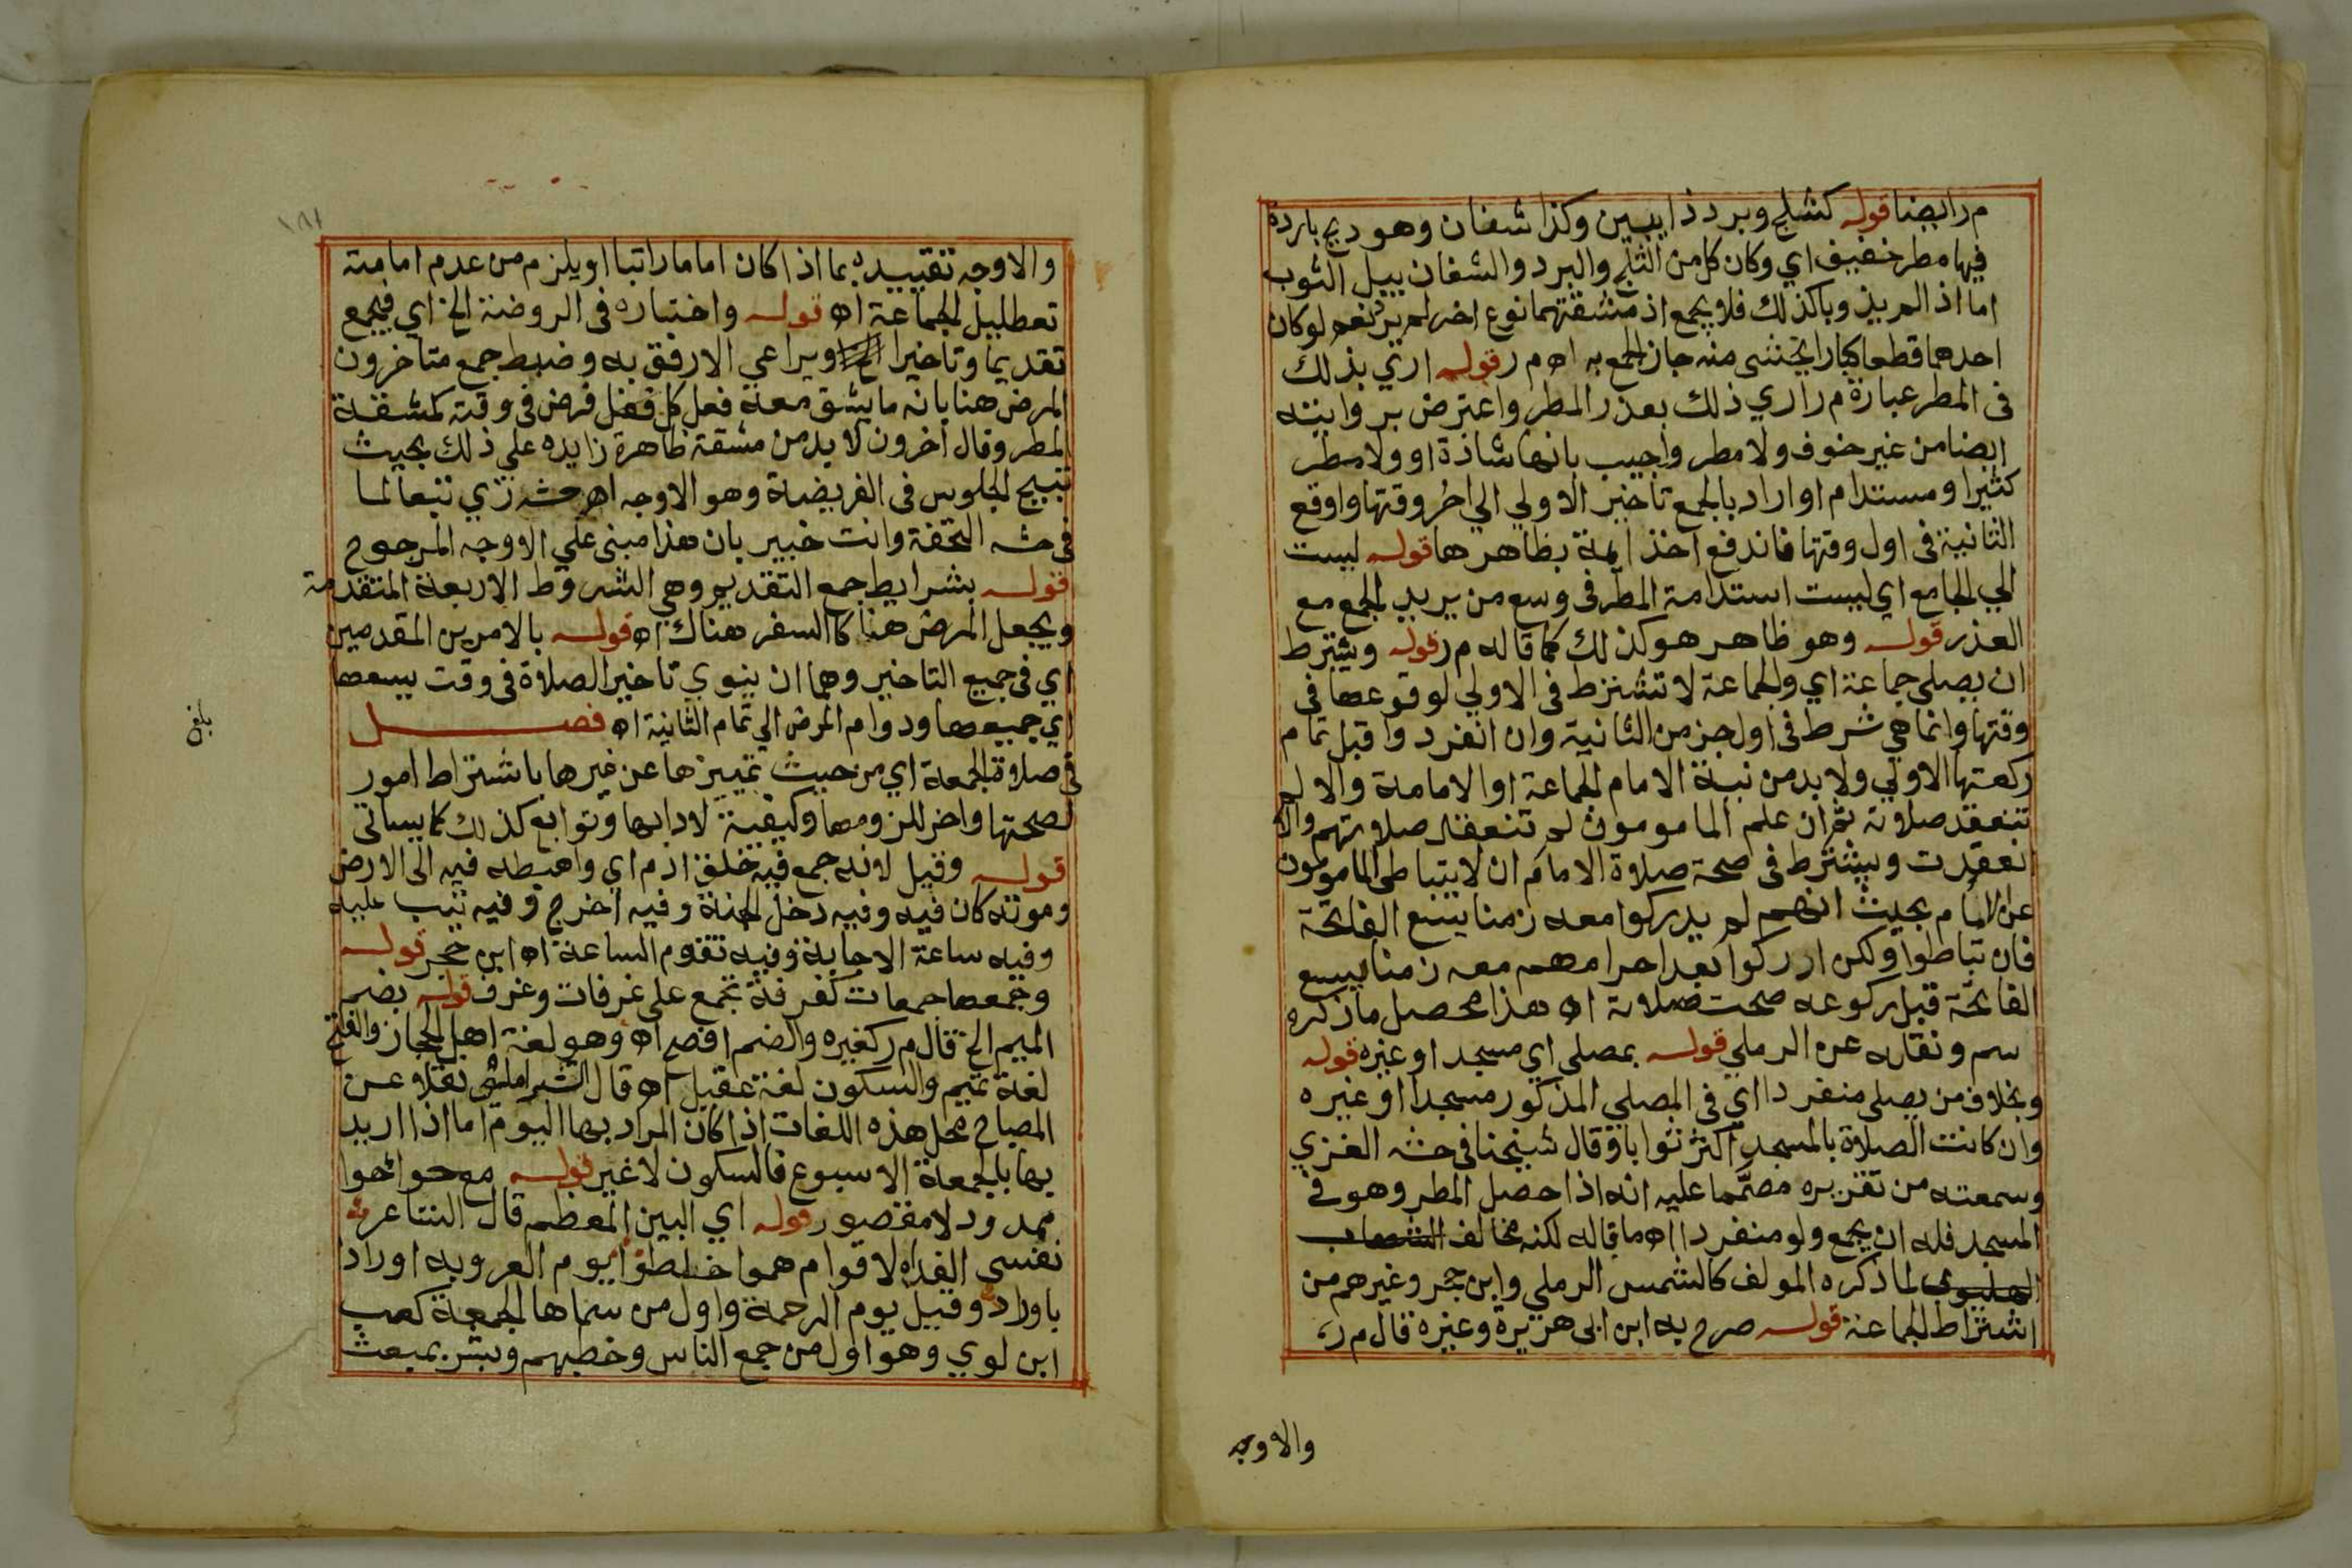 م ر ايضا قوله كثلج وبرد ذايبين وكذا شفان وهو ريح باردة
فيها مطر خفيف اي وكان كل من الثلج والبرد والشفان يبل الثوب
اما اذا لم يذوبا كذلك فلا يجمع اذ مشقتهما نوع اخر لم يرد نعم لو كان
احدهما قطعا كبارا يخشى منه جاز الجمع به اه م ر قوله اري بذلك
فى المطر عبارة م ر اري ذلك بعذر المطر واعترض بروايته
ايضا من غير خوف ولا مطر واجيب بانها شاذة او ولا مطر
كثيرا ومستدام او اراد بالجمع تاخير الاولي الي اخر وقتها واوقع
الثانية فى اول وقتها فاندفع اخذ ايمة بظاهرها قوله ليست
الي الجامع اي ليست استدامة المطر فى وسع من يريد الجمع مع
العذر قوله وهو ظاهر هو كذلك كما قاله م ر قوله ويشترط
ان يصلي جماعة اي والجماعة لا تشترط فى الاولي لوقوعها فى
وقتها وانما هي شرط فى اول جز من الثانية وان انفردوا قبل تمام
ركعتها الاولي ولا بد من نية الامام الجماعة او الامامة والا لم
تنعقد صلاته ثم ان علم المامومون لم تنعقد صلاتهم والا
انعقدت ويشترط فى صحة صلاة الامام ان لا يتباطى المامومون
عن الامام بحيث انهم لم يدركوا معه زمنا يسع الفاتحة
فان تباطوا ولكن ادركوا بعد احرامهم معه زمنا يسع
الفاتحة قبل ركوعه صحت صلاته اه هذا محصل ما ذكره
سم ونقله عن الرملي قوله بمصلي اي مسجد او غيره قوله
وبخلاف من يصلي منفردا اي فى المصلي المذكور مسجدا او غيره
وان كانت الصلاة بالمسجد اكثر ثوابا وقال شيخنا فى حشه الغزي
وسمعته من تقريره مصمما عليه انه اذا حصل المطر وهو فى
المسجد فله ان يجمع ولو منفردا اه ما قاله لكنه مخالف
لما ذكره المولف كالشمس الرملي وابن حجر وغيرهم من
اشتراط الجماعة قوله صرح به ابن ابي هريرة وغيره قال م ر
والاوجه
١٨١
والاوجه تقييده بما اذا كان اماما راتبا او يلزم من عدم امامته
تعطيل الجماعة اه قوله واختاره فى الروضة الخ اي فيجمع
تقديما وتاخيرا ويراعي الارفق به وضبط جمع متاخرون
المرض هنا بانه ما يشق معه فعل كل فرض فى وقته كمشقة
المطر وقال اخرون لا بد من مشقة ظاهرة زايده علي ذلك بحيث
تبيح الجلوس فى الفريضة وهو الاوجه اه حشه زي تبعا لما
فى حشه التحفة وانت خبير بان هذا مبنى علي الاوجه المرجوح
قوله بشرايط جمع التقديم وهي الشروط الاربعة المتقدمة
ويجعل المرض هنا كالسفر هناك اه قوله بالامرين المقدمين
اي فى جميع التاخير وهما ان ينوي تاخير الصلاة فى وقت يسعها
اي جميعها ودوام المرض الي تمام الثانية اه فصل
فى صلاة الجمعة اي من حيث تمييزها عن غيرها باشتراط امور
لصحتها واخر للزومها وكيفية لادايها وتوابع كذلك كما يساتى
قوله وقيل لانه جمع فيه خلق ادم اي واهبطه فيه الى الارض
وموته كان فيه وفيه دخل الجنة وفيه اخرج وفيه تيب عليه
وفيه ساعة الاجابة وفيه تقوم الساعة اه ابن حجر قوله
وجمعها جمعات كغرفة تجمع على غرفات وغرف قوله بضم
الميم الخ قال م ر كغيره والضم افصح اه وهو لغة اهل الحجاز والفتح
لغة تميم والسكون لغة عقيل اه قال الشبراملسى نقلا عن
المصباح محل هذه اللغات اذا كان المراد بها اليوم اما اذا اريد
بها بالجمعة الاسبوع فالسكون لا غير قوله مع حوائحوا
ممدود لا مقصور قوله اي البين المعظم قال الشاعر شه
نفسي الفداه لاقوام هموا خلطوا يوم العروبه اورادا
باوراد وقيل يوم الرحمة واول من سماها الجمعة كعب
ابن لوي وهو اول من جمع الناس وخطبهم وبشر بمبعث
بلغ